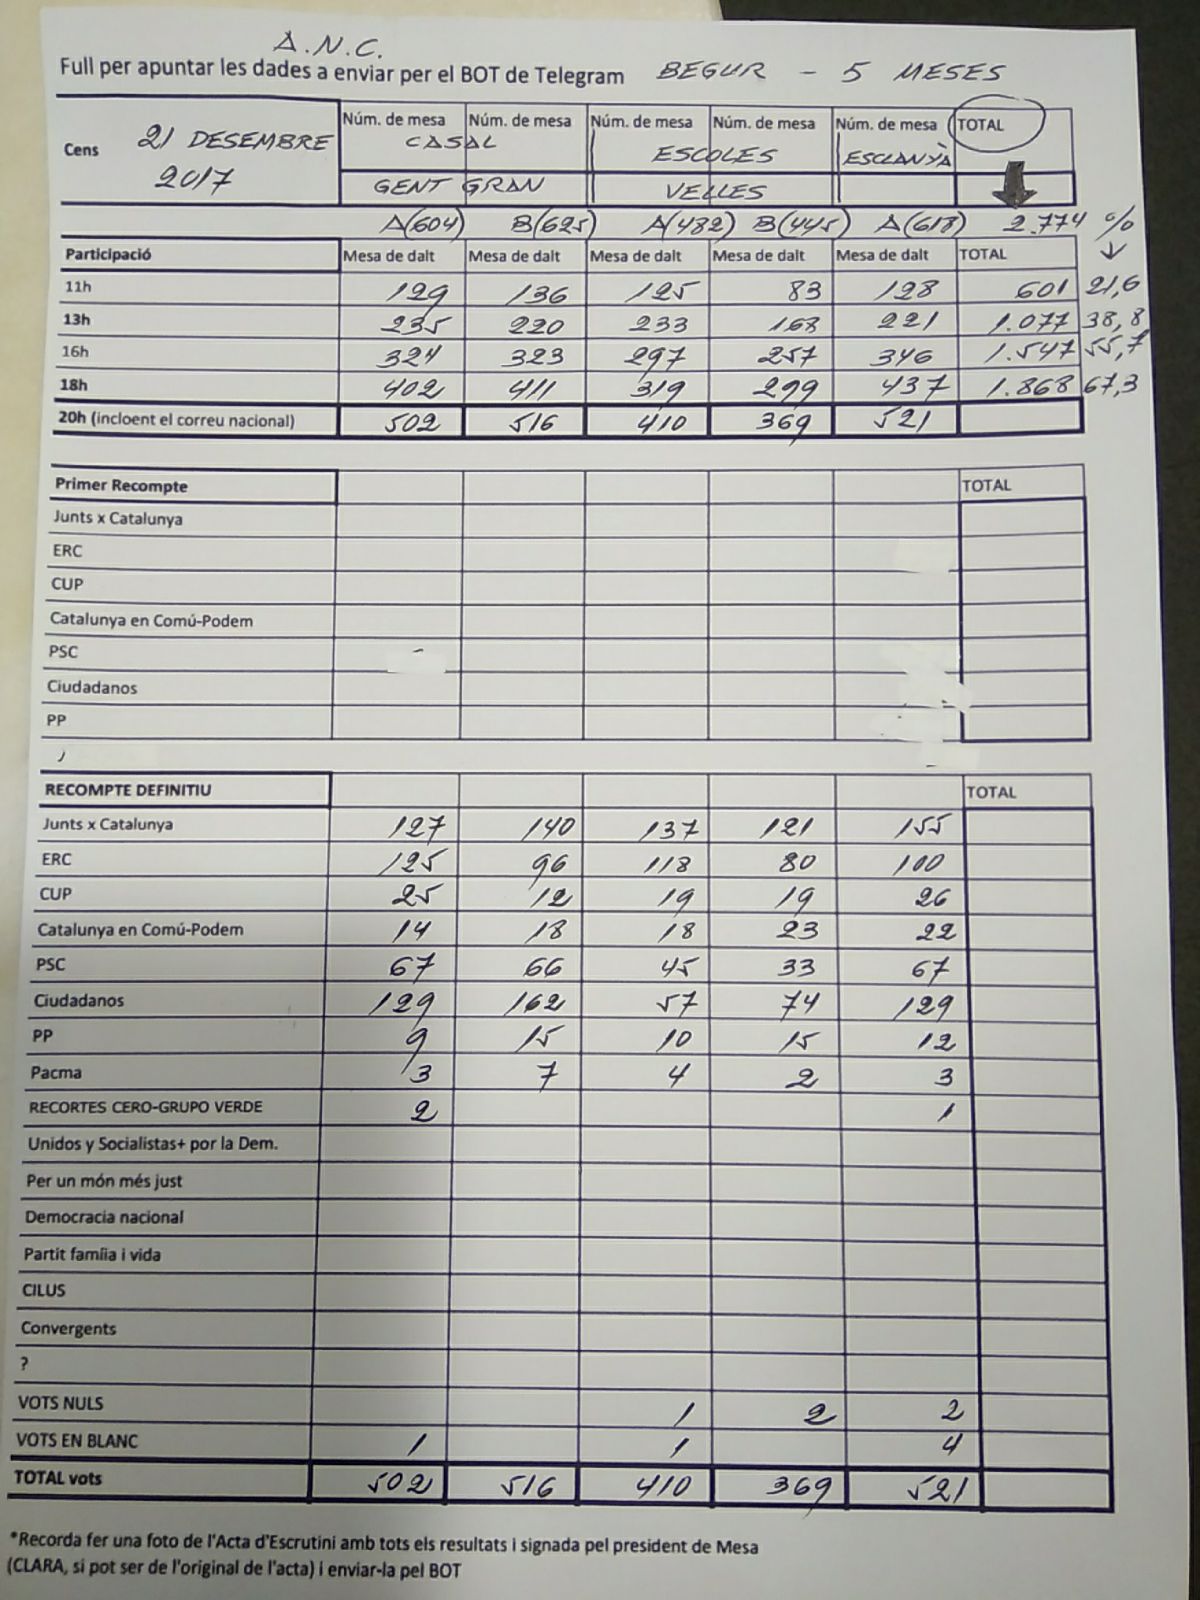 A.N.C.
Full per apuntar les dades a enviar per el BOT de Telegram BEGUR - 5 MESES
Cens 21 DESEMBRE 2017
Núm. de mesa Núm. de mesa Núm. de mesa Núm. de mesa Núm. de mesa TOTAL
CASAL ESCOLES ESCLANYÀ
GENT GRAN VELLES
A(604) B(625) A(482) B(445) A(618) 2.774 %
Participació Mesa de dalt Mesa de dalt Mesa de dalt Mesa de dalt Mesa de dalt TOTAL
11h 129 136 125 83 128 601 21,6
13h 235 220 233 168 221 1.077 38,8
16h 324 323 297 257 346 1.547 55,7
18h 402 411 319 299 437 1.868 67,3
20h (incloent el correu nacional) 502 516 410 369 521
Primer Recompte TOTAL
Junts x Catalunya
ERC
CUP
Catalunya en Comú-Podem
PSC
Ciudadanos
PP
RECOMPTE DEFINITIU TOTAL
Junts x Catalunya 127 140 137 121 155
ERC 125 96 118 80 100
CUP 25 12 19 19 26
Catalunya en Comú-Podem 14 18 18 23 22
PSC 67 66 45 33 67
Ciudadanos 129 162 57 74 129
PP 9 15 10 15 12
Pacma 3 7 4 2 3
RECORTES CERO-GRUPO VERDE 2 1
Unidos y Socialistas+ por la Dem.
Per un món més just
Democracia nacional
Partit famíia i vida
CILUS
Convergents
?
VOTS NULS 1 2 2
VOTS EN BLANC 1 1 4
TOTAL vots 502 516 410 369 521
*Recorda fer una foto de l'Acta d'Escrutini amb tots els resultats i signada pel president de Mesa
(CLARA, si pot ser de l'original de l'acta) i enviar-la pel BOT